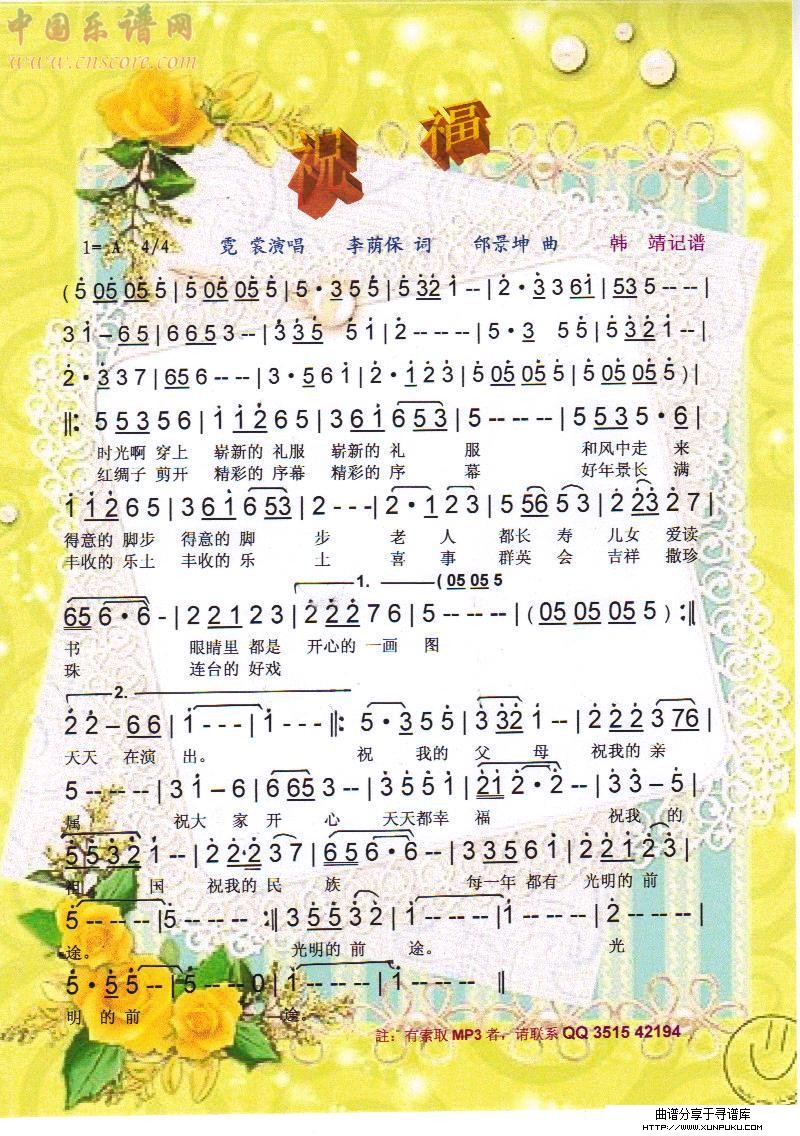 中国乐谱网
www.cnscore.com
祝 福
1= A 4/4 霓 裳演唱 李荫保 词 邰景坤 曲 韩 靖记谱
( 5 05 05 5 | 5 05 05 5 | 5 · 3 5 5 | 5 32 1 -- | 2 · 3 3 61 | 53 5 -- -- |
3 1 – 6 5 | 6 6 5 3 -- | 3 3 5 5 1 | 2 -- -- -- | 5 · 3 5 5 | 5 3 2 1 -- |
2 · 3 3 7 | 65 6 -- -- | 3 · 5 6 1 | 2 · 1 2 3 | 5 05 05 5 | 5 05 05 5 ) |
‖: 5 5 3 5 6 | 1 1 2 6 5 | 3 6 1 6 5 3 | 5 -- -- -- | 5 5 3 5 · 6 |
时光啊 穿上 崭新的 礼服 崭新的 礼 服 和风中走 来
红绸子 剪开 精彩的 序幕 精彩的 序 幕 好年景长 满
1 1 2 6 5 | 3 6 1 6 53 | 2 - - - | 2 · 1 2 3 | 5 56 5 3 | 2 23 2 7 |
得意的 脚步 得意的 脚 步 老 人 都长 寿 儿女 爱读
丰收的 乐土 丰收的 乐 土 喜 事 群英 会 吉祥 撒珍
1. ( 05 05 5
65 6 · 6 - | 2 2 1 2 3 | 2 2 2 7 6 | 5 -- -- -- | ( 05 05 05 5 ) :‖
书 眼睛里 都是 开心的 一画 图
珠 连台的 好戏
2.
2 2 – 6 6 | 1 - - - | 1 - - - ‖: 5 · 3 5 5 | 3 32 1 -- | 2 2 2 3 76 |
天天 在演 出。 祝 我的 父 母 祝我的 亲
5 -- -- -- | 3 1 – 6 | 6 65 3 -- | 3 5 5 1 | 21 2 · 2 -- | 3 3 – 5 |
属 祝大 家 开 心 天天都幸 福 祝我 的
5 5 3 2 1 -- | 2 2 2 3 7 | 6 5 6 · 6 -- | 3 3 5 6 1 | 2 2 1 2 3 |
国 祝我的 民 族 每一年 都有 光明的 前
5 -- -- -- | 5 -- -- -- :‖ 3 5 5 3 2 | 1 -- -- -- | 1 -- -- -- | 2 -- -- -- |
途。 光明的 前 途。 光
5 · 5 5 -- | 5 -- -- 0 | 1 -- -- -- | 1 -- -- -- ‖
明 的 前 途。
註：有索取 MP3 者，请联系 QQ 3515 42194
曲谱分享于寻谱库
HTTP://WWW.XUNPUKU.COM